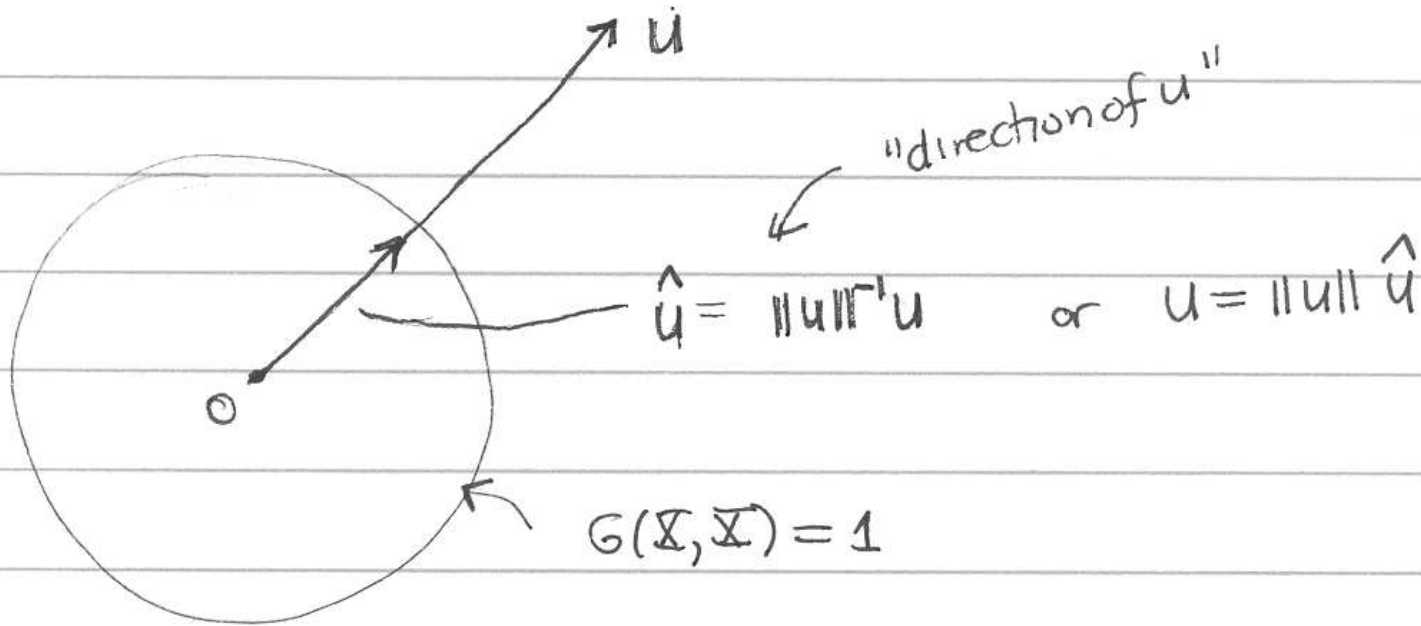 u
"direction of u"
û = ||u||⁻¹u or u = ||u|| û
O
G(X, X) = 1